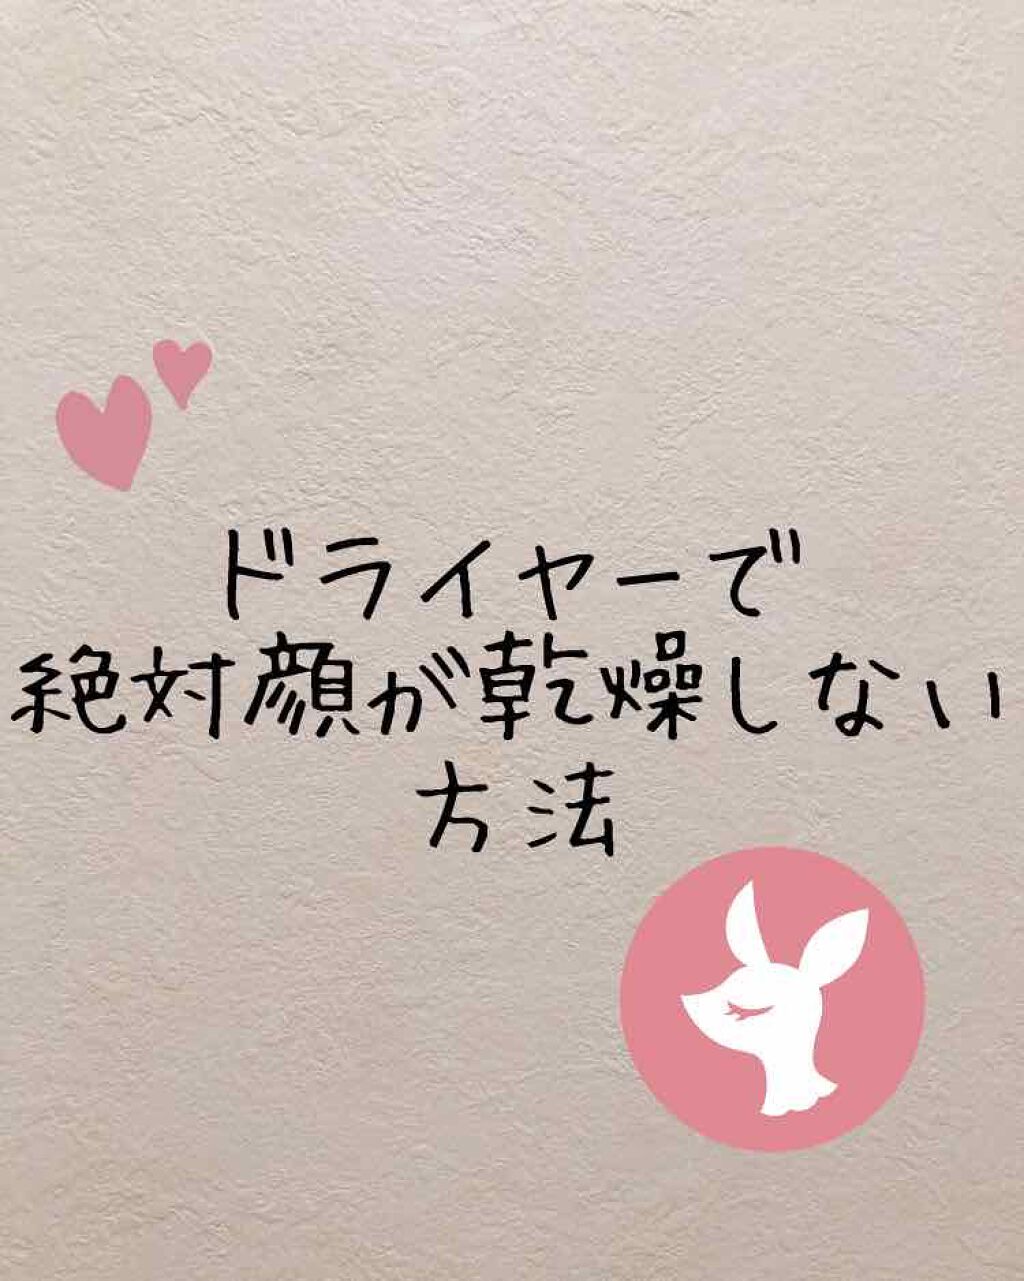 ドライヤーで
絶対顔が乾燥しない
方法